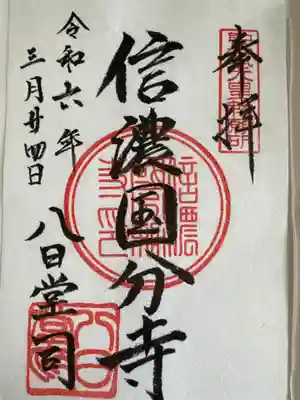 奉拝
信濃国分寺
八日堂司
令和六年
三月廿四日